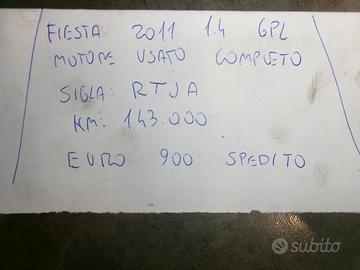 FIESTA 2011 1.4 GPL
MOTORE USATO COMPLETO
SIGLA: RTJA
KM: 143.000
EURO 900 SPEDITO
subito